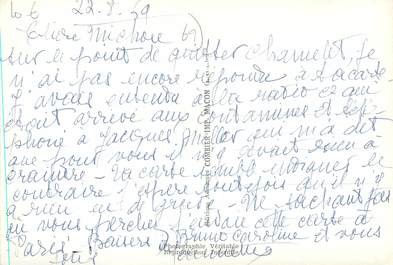 22.8.69
sur le point de quitter Chamelet, je
n'ai pas encore répondu à ta carte
J'avais entendu à la radio ce qui
était arrivé aux Contamines et télé-
phoné à Jacques qui m'a dit
que pour vous il n'y avait rien à
craindre - Ta carte semble indiquer le
contraire J'espère toutefois qu'il n'y
a rien eu de grave - Ne sachant pas
où vous percher j'envoie cette carte à
Paris - Baisers à Caroline et vous
tous
COMBIER IMP. MACON
Photographie Véritable